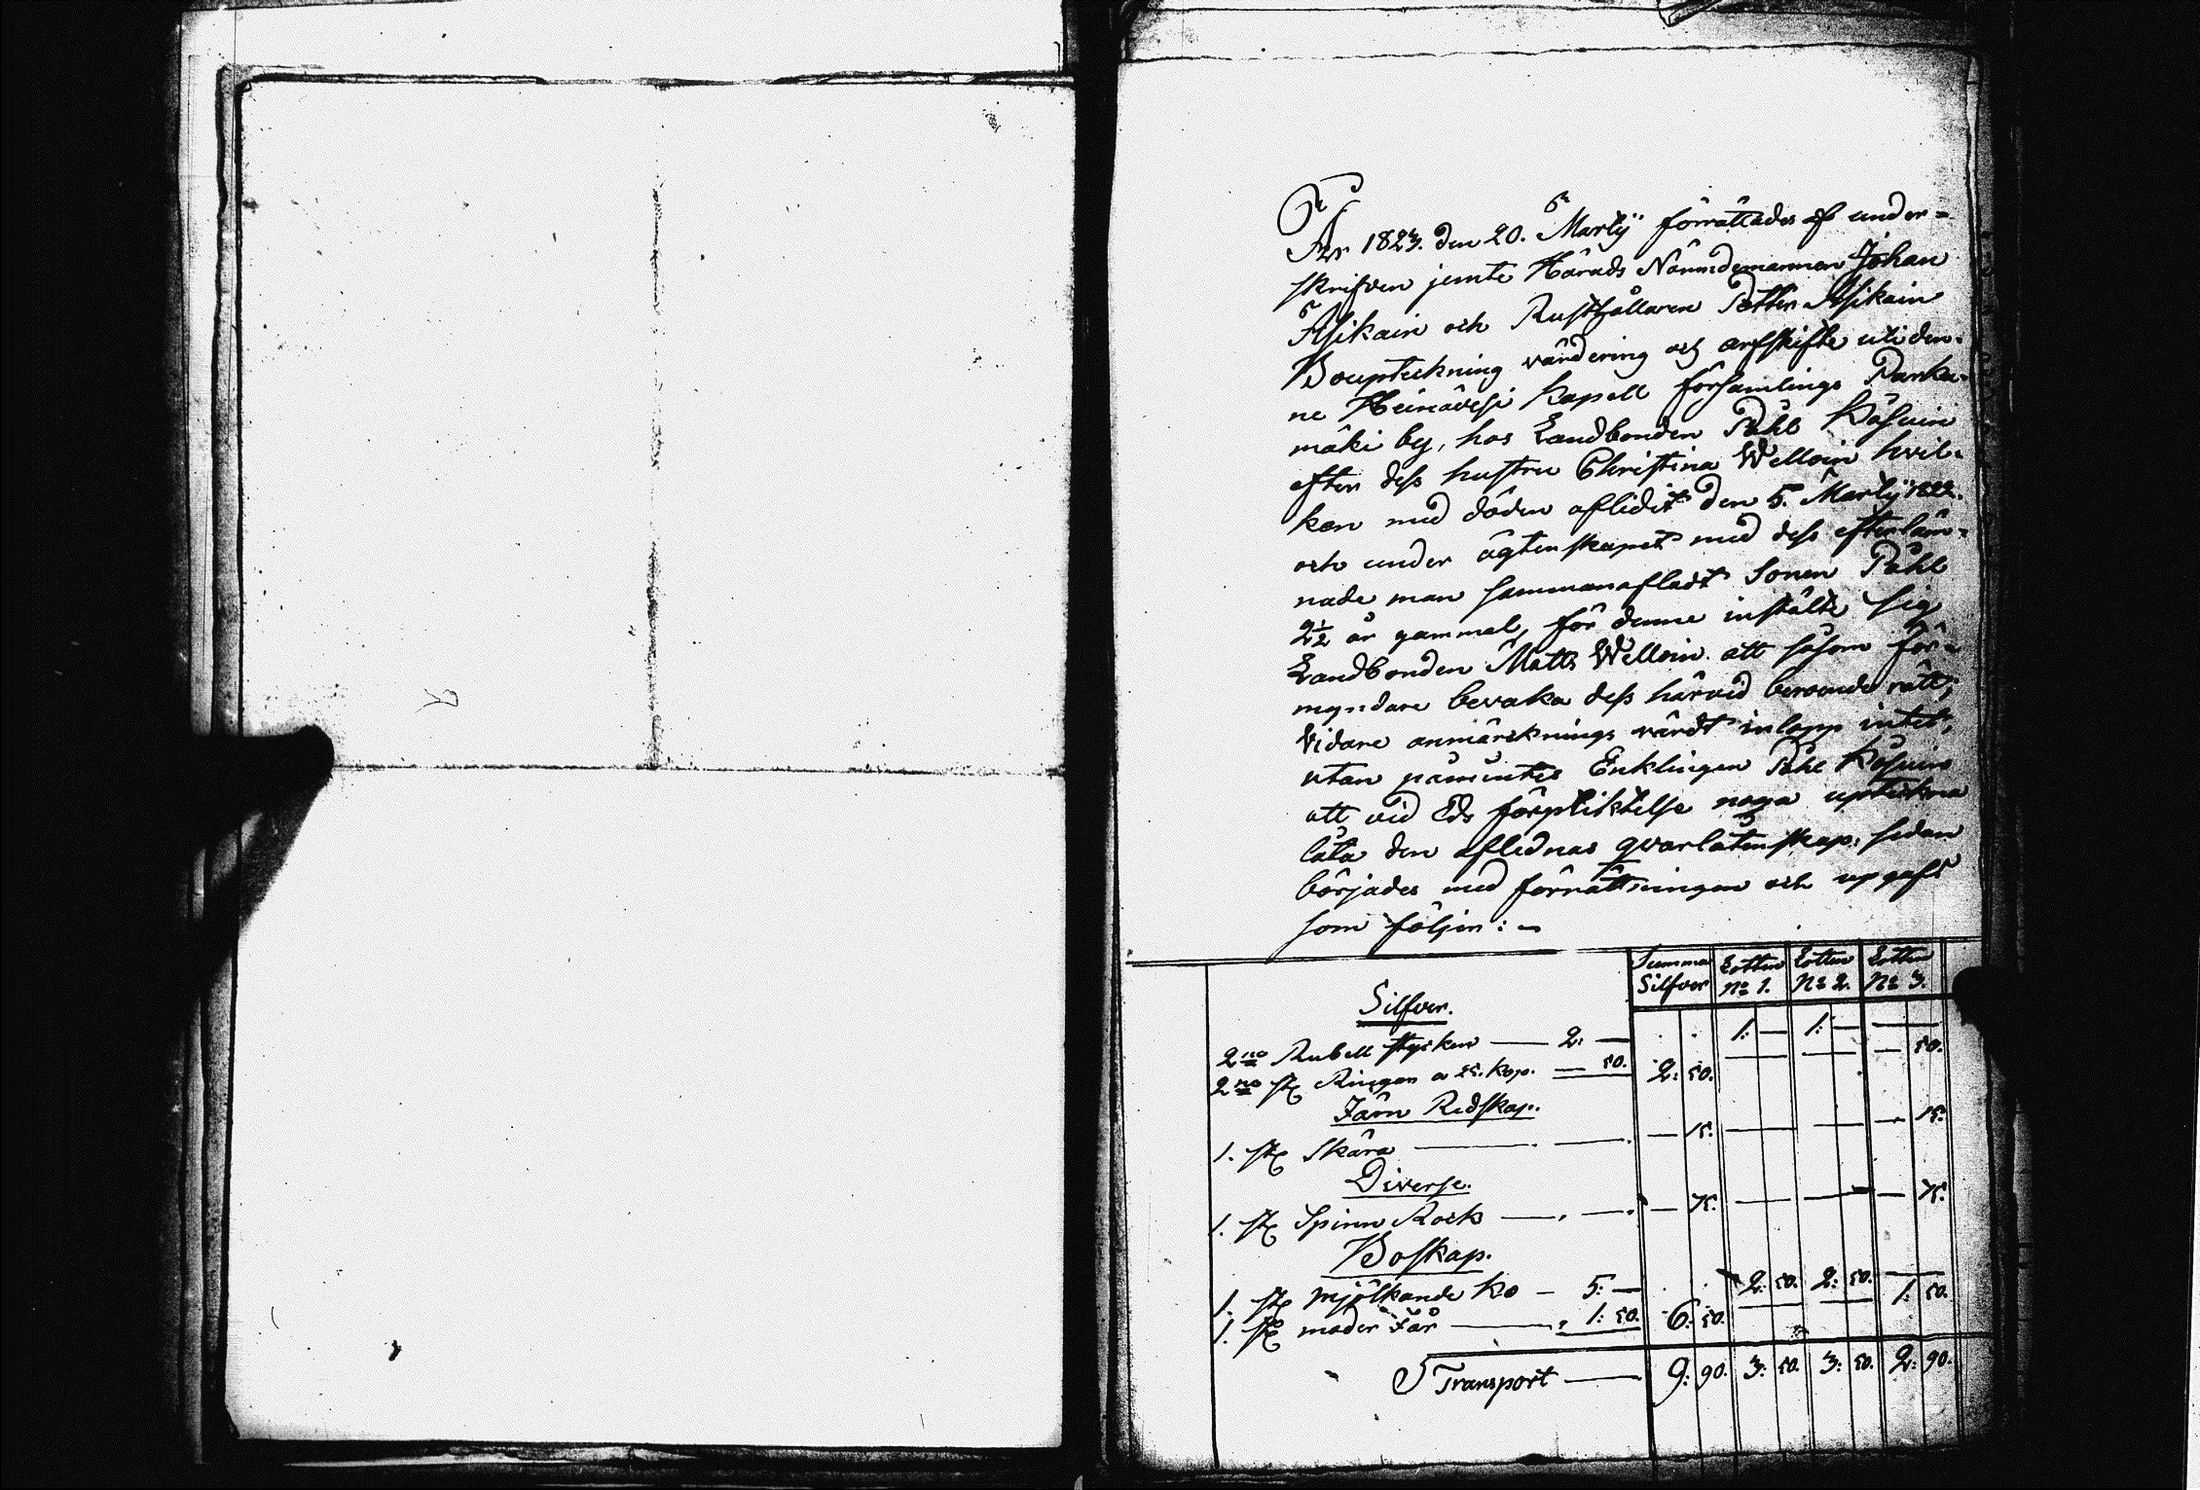 År 1823. den 20. Martij förrättades af under=
skrifven jemte Härads Nämndemannen Johan
Asikain och Rusthållaren Petter Asikain
Bouptekning värdering och arfskifte uti den-
ne Heinävesi Kapell församlings Parka-
mäki by, hos Landbonden Påhl Kåsuin
efter dess hustru Christina Welloin hvil-
ken med döden aflidit den 5. Martij 1822.
och under ägtenskapet med dess efterläm-
nade man sammanafladt Sonen Påhl
2½ år gammal, för denne instälte sig
Landbonden Matts Welloin att såsom för-
myndare bevaka dess härvid beroende rätt;
Vidare anmärknings värdt inlopp intet,
utan påmintes Enklingen Påhl Kåsuin
att vid Eds förpliktelse noga uptekna
låta den aflednas qvarlåtenskap; sedan
börjades med förrättningen och upgafs
som följer:
Summa Silfver Lotten No 1. Lotten No 2. Lotten No 3.
Silfver.
2no Rubell stycken — 2: — 1: — 1: —
2no st Ringar a 25. kop. — 50. 2: 50. — 50.
Järn Redskap.
1. st Skära — 15. — 15.
Diverse.
1. st Spinn Rock — 75. — 75.
Boskap.
1. st mjölkande ko — 5: — 2: 50. 2: 50.
1. st moder Får — 1: 50. 6: 50. 1: 50.
Transport — 9: 90. 3: 50. 3: 50. 2: 90.